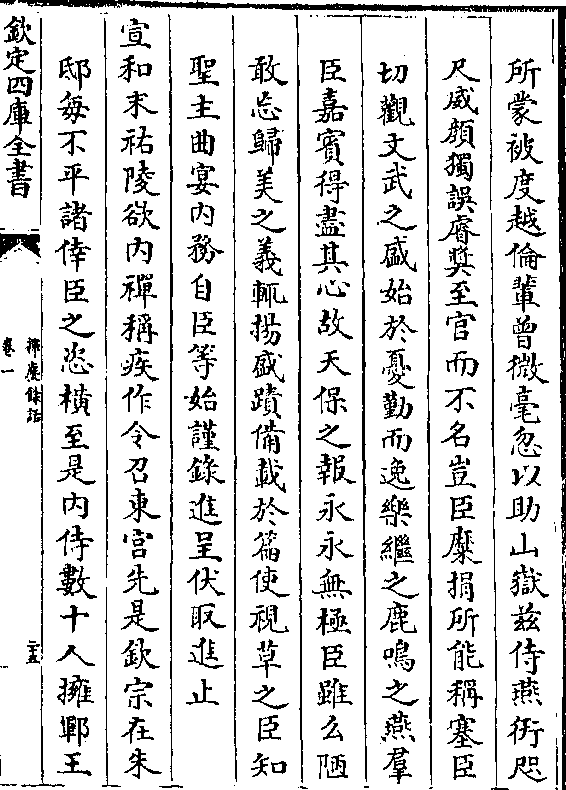 所蒙被度越倫輩曾微毫忽以助山嶽兹侍燕衎咫
尺威顔獨誤睿奬至官而不名豈臣糜捐所能稱塞臣
切觀文武之盛始於憂勤而逸樂繼之鹿鳴之燕羣
臣嘉賓得盡其心故天保之報永永無極臣雖么陋
敢忘歸美之義輒揚盛蹟備載於篇使視草之臣知
聖主曲宴内務自臣等始謹錄進呈伏取進止
宣和末祐陵欲内禪稱疾作令召東宮先是欽宗在朱
邸每不平諸倖臣之恣横至是内侍數十人擁鄆王
欽定四庫全書
揮麈餘話
卷一
二十五